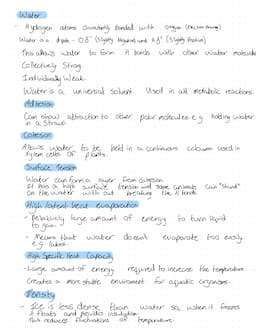 Water
- Hydrogen atoms covalently bonded with oxygen
Water is a dipole - O δ⁻ (slightly negative) and H δ⁺ (slightly positive)
This allows water to form H bonds with other water molecules
Collectively Strong.
Individually Weak.
Water is a universal solvent. Used in all metabolic reactions.
Adhesion
Can show attraction to other polar molecules e.g. holding water
in a straw.
Cohesion
Allows water to be held in a continuous column used in
xylem cells of plants.
Surface Tension
Water can form a layer from cohesion.
It has a high surface tension and some animals can "stand"
on the water without breaking the H bonds
High latent heat evaporation
- Relatively large amount of energy to turn liquid
to gas.
- Means that water doesn't evaporate too easily
e.g. lakes.
High Specific Heat Capacity
- Large amount of energy required to increase the temperature
Creates a more stable environment for aquatic organisms.
Density
- Ice is less dense than water so, when it freezes
it floats and provides insulation.
This reduces fluctuations of temperature.